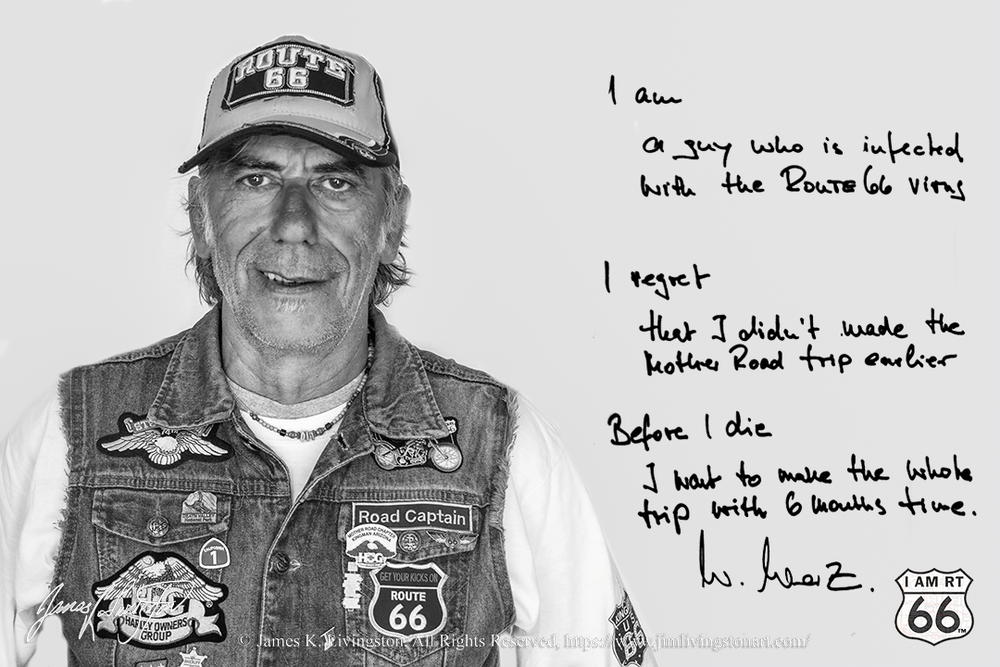 ROUTE
66
I am
a guy who is infected
with the ROUTE 66 virus
I regret
that I didn't made the
Mother Road trip earlier
Before I die
I want to make the whole
trip with 6 months time.
Road Captain
MOTHER ROAD CHAPTER
KINGMAN ARIZONA
HOG
CALIFORNIA
1
GET YOUR KICKS ON
ROUTE
66
HARLEY OWNERS
GROUP
I AM RT
66
TM
© James K. Livingston, All Rights Reserved, https://www.jimlivingstonart.com/